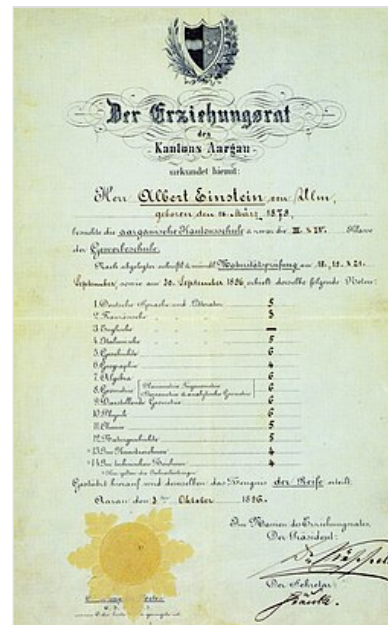 Der Erziehungsrat
des
Kantons Aargau
urkundet hiermit:
Herr Albert Einstein, von Ulm,
geboren den 14. März 1879,
besuchte die aargauische Kantonsschule & zwar die III. & IV. Klasse
der Gewerbeschule.
Nach abgelegter schriftl. & mündl. Maturitätsprüfung am 18., 19. & 21.
September, sowie am 30. September 1896 erhielt derselbe folgende Noten:
1. Deutsche Sprache und Litteratur 5
2. Französische 3
3. Englische —
4. Italienische 5
5. Geschichte 6
6. Geographie 4
7. Algebra 6
8. Geometrie (Planimetrie, Trigonometrie, Stereometrie & analytische Geometrie) 6
9. Darstellende Geometrie 6
10. Physik 6
11. Chemie 5
12. Naturgeschichte 5
*13. Im Kunstzeichnen 4
*14. Im technischen Zeichnen 4
* Hier gelten die Jahresleistungen.
Gestützt hierauf wird demselben das Zeugnis der Reife erteilt.
Aarau den 3ten Oktober 1896.
Im Namen des Erziehungsrates,
Der Präsident:
Der Sekretär: